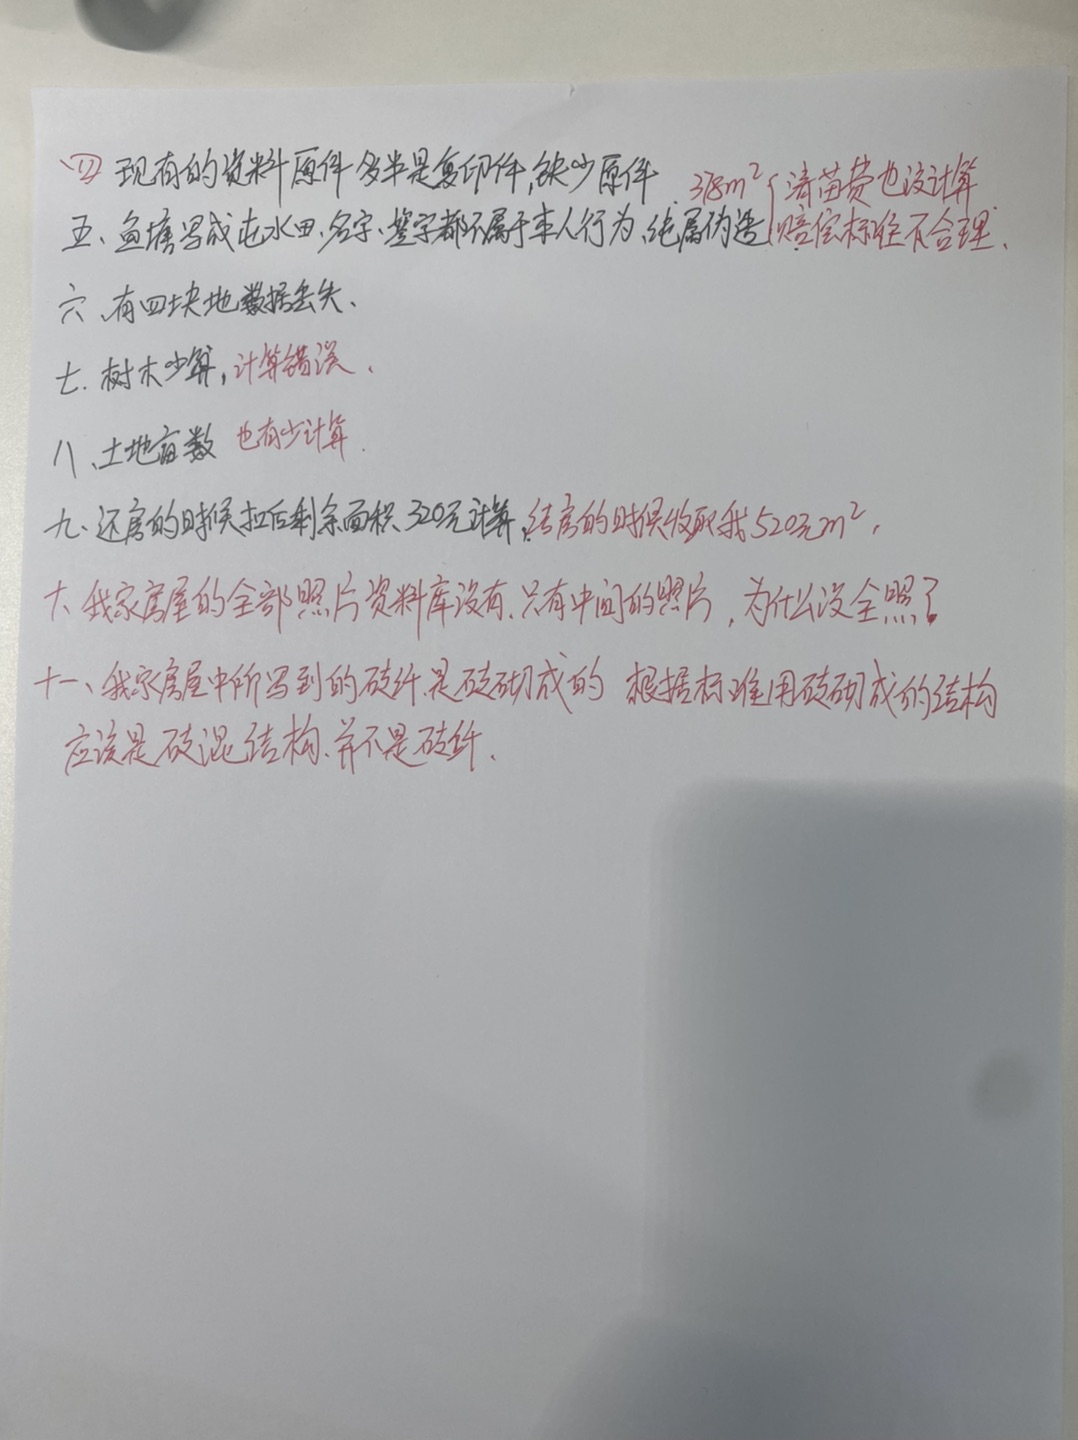 四 现有的资料原件多半是复印件,缺少原件
五、鱼塘写成屯水田、名字、签字都不属于本人行为、纯属伪造 378m² 清苗费也没计算 赔偿标准不合理、
六、有四块地数据丢失、
七、树木少算,计算错误、
八、土地亩数 也有少计算.
九、还房的时候拉后剩余面积320元计算,结房的时候收取我520元m²,
十、我家房屋的全部照片资料库没有、只有中间的照片,为什么没全照?
十一、我家房屋中所写到的砖纤是砖砌成的 根据标准用砖砌成的结构
应该是砖混结构、并不是砖纤、